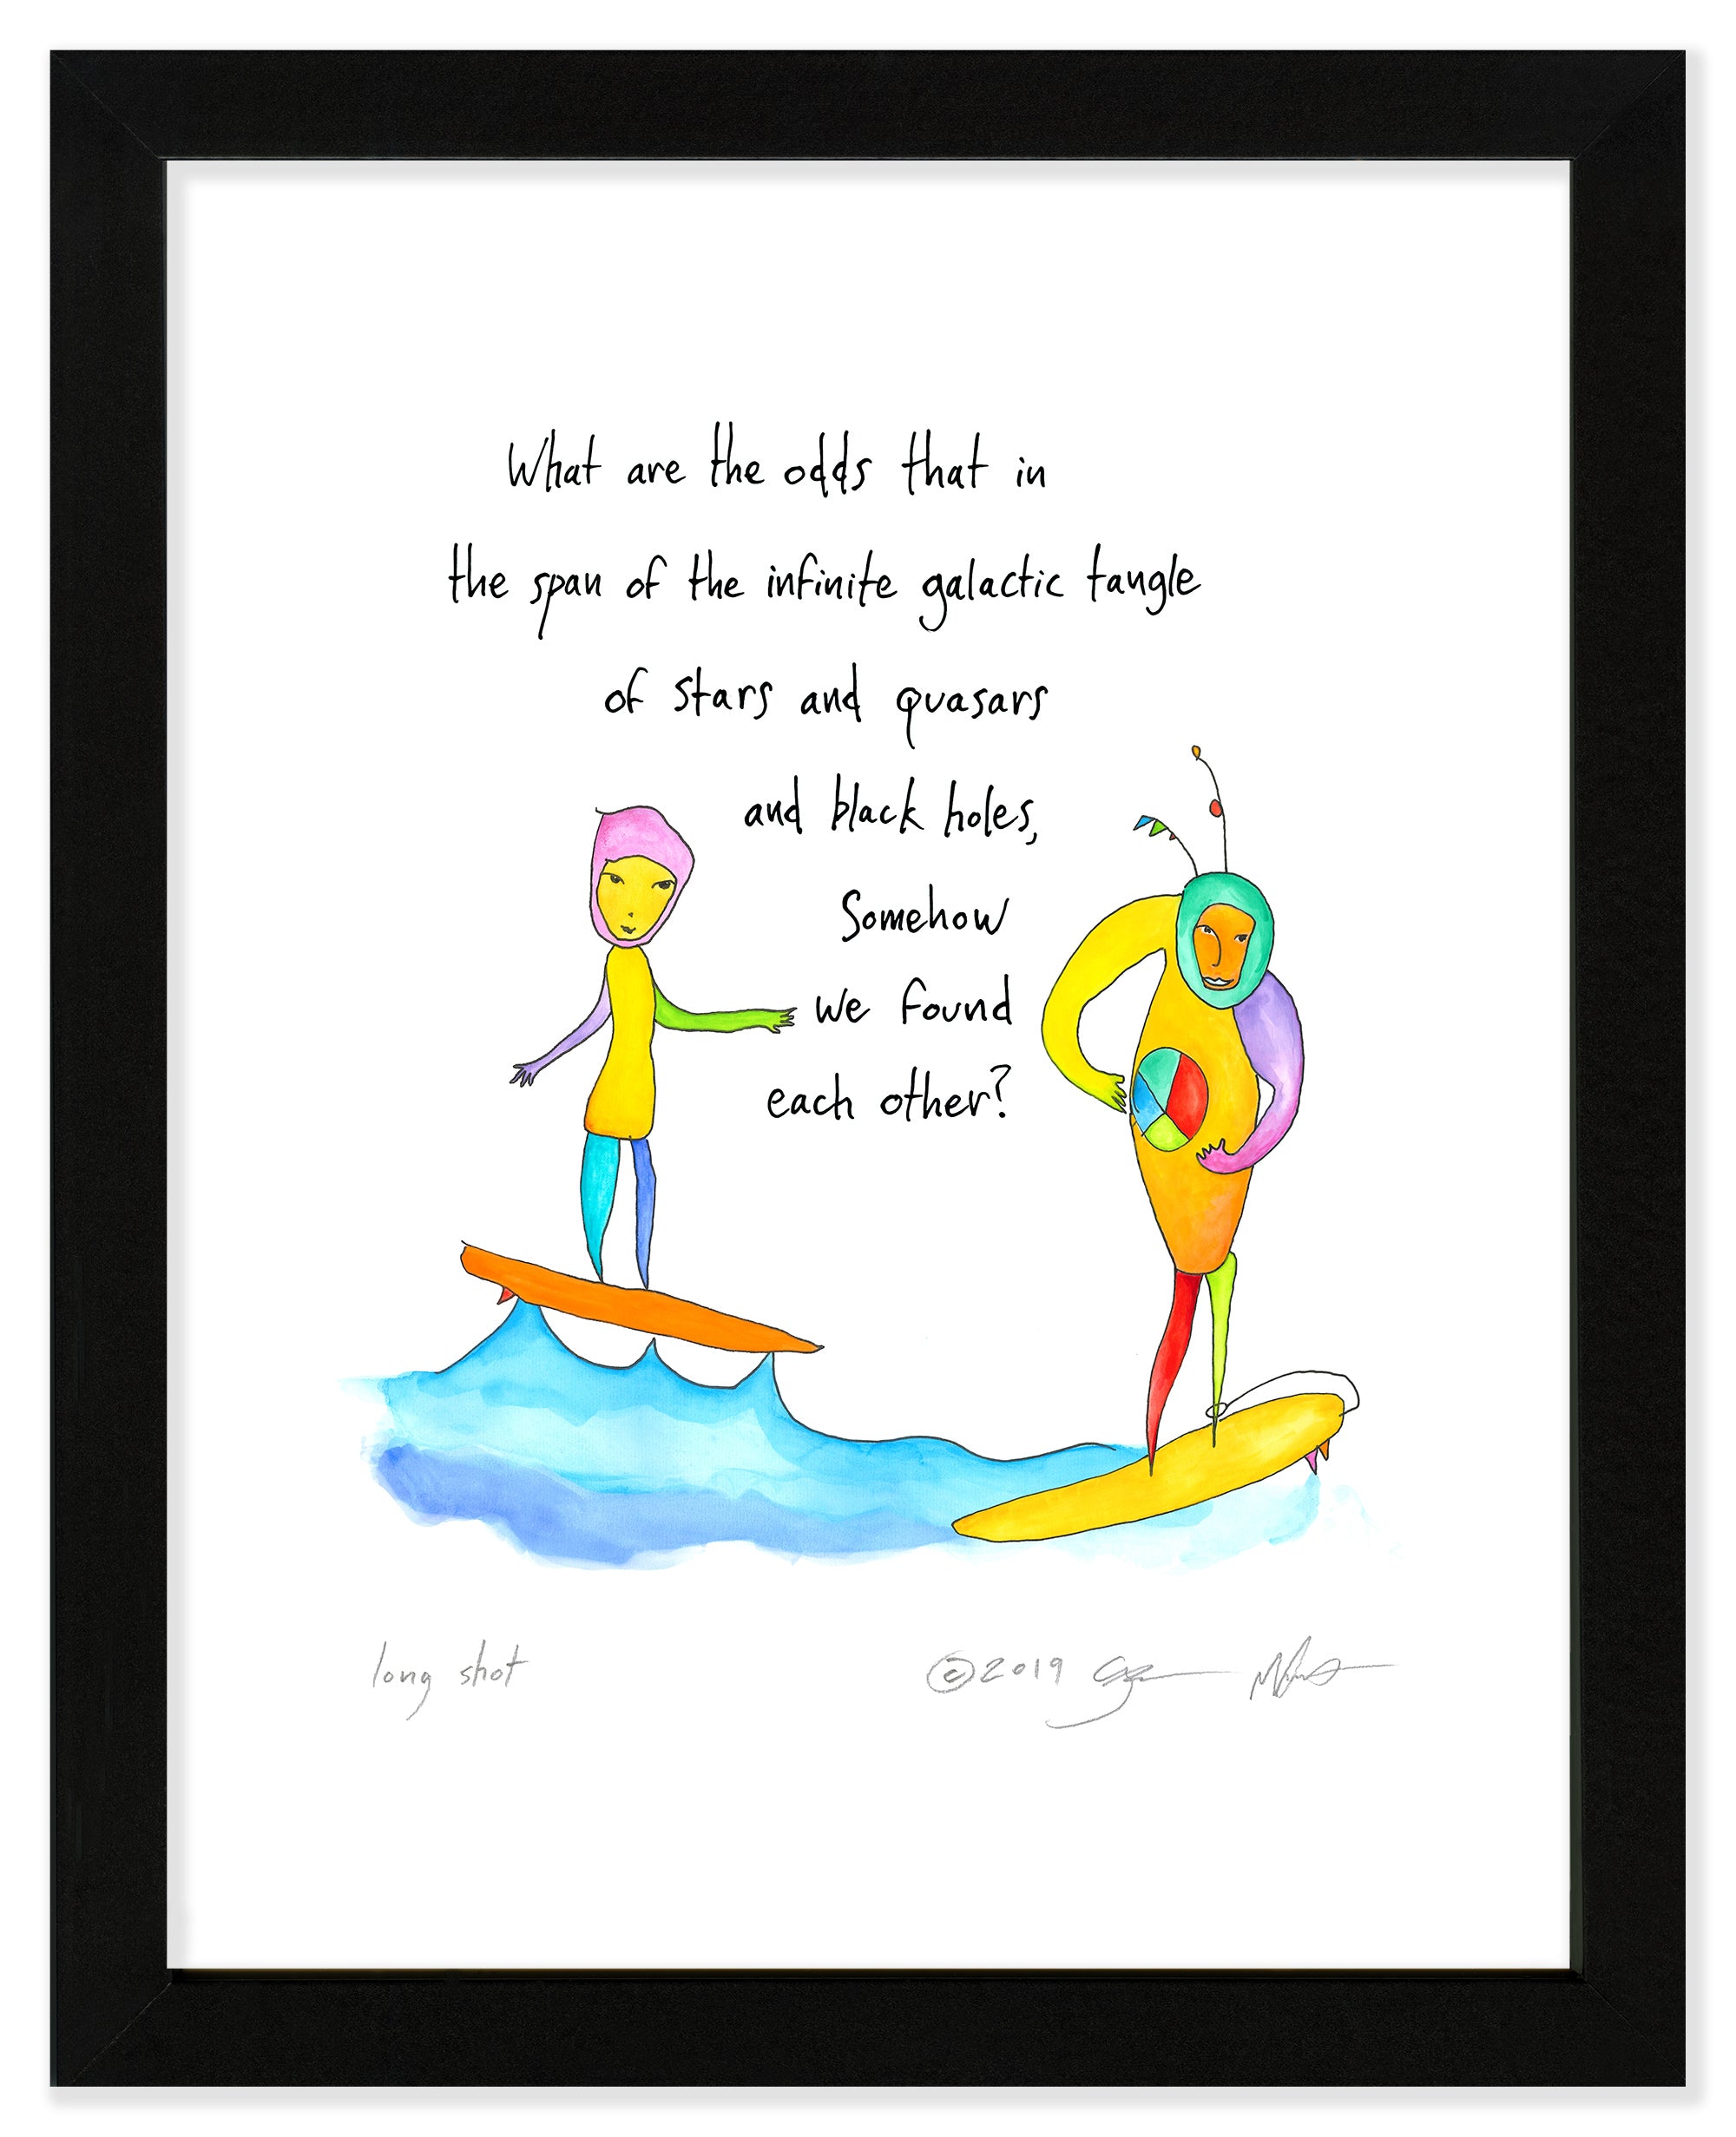 What are the odds that in
the span of the infinite galactic tangle
of stars and quasars
and black holes,
Somehow
we found
each other?
long shot
©2019